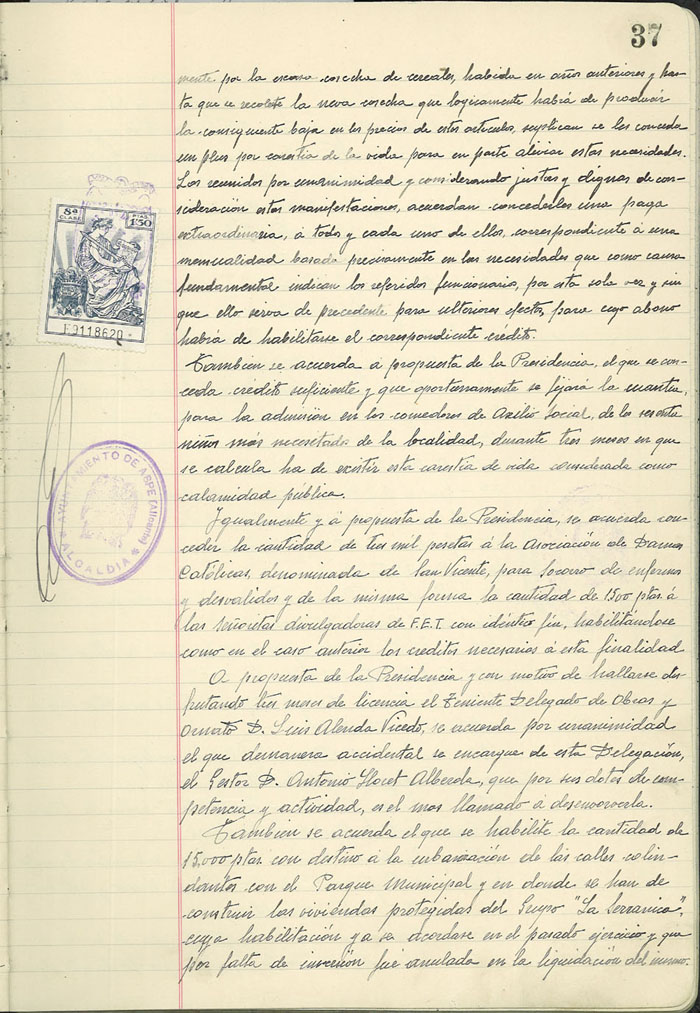 37
mente por la escasa cosecha de cereales, habida en años anteriores y has-
ta que se recolete la neva cosecha que logicamente habrá de producir
la consiguente baja en los precios de estos articulos, suplican se les conceda
un plus por carestia de la vida para en parte aliviar estas necesidades.
Los reunidos por unanimidad y considerando justas y dignas de con-
sideración estas manifestaciones, acuerdan concederles una paga
extraordinaria, á todos y cada uno de ellos, correspondiente á una
mensualidad basada precisamente en las necesidades que como causa
fundamental indican los referidos funcionarios, por esta sola vez y sin
que ello serva de precedente para ulteriores efectos, para cuyo abono
habrá de habilitarse el correspondiente crédito.
Tambien se acuerda á propuesta de la Presidencia, el que se con-
ceda crédito suficiente y que oportunamente se fijará la cuantia,
para la admisión en los comedores de Auxilio Social, de los sesenta
niños más necesetados de la localidad, durante tres meses en que
se calcula ha de existir esta carestia de vida considerada como
calamidad pública.
Igualmente y á propuesta de la Presidencia, se acuerda con-
ceder la cantidad de tres mil pesetas á la Asociación de Damas
Católicas, denominada de San Vicente, para socorro de enfermos
y desvalidos y de la misma forma la cantidad de 1500 ptas. á
las Señoretas divulgadoras de F.E.T. con idéntico fin, habilitándose
como en el caso anterior los creditos necesarios á esta finalidad
A propuesta de la Presidencia y con motivo de hallarse dis-
frutando tres meses de licencia el Teniente Delegado de Obras y
Ornato D. Luis Alenda Vicedo, se acuerda por unanimidad
el que de manera accidental se encargue de esta Delegación,
el Gestor D. Antonio Llocet Albeeda, que por sus dotes de com-
petencia y actividad, es el mas llamado a
Tambien se acuerda el que se habilite la cantidad de
15,000 ptas. con destino á la de las calles colin-
dantes con el Parque Municipal y en donde se han de
construir las viviendas protegidas del Grupo "La Serranica",
cuya habilitación ya se acordase en el pasado ejercicio y que
por falta de inversión fue anulada en la liquidación del mismo.
8ª
CLASE
PTAS
1'50
E9118620
AYUNTAMIENTO DE ASPE (Alicante)
ALCALDIA